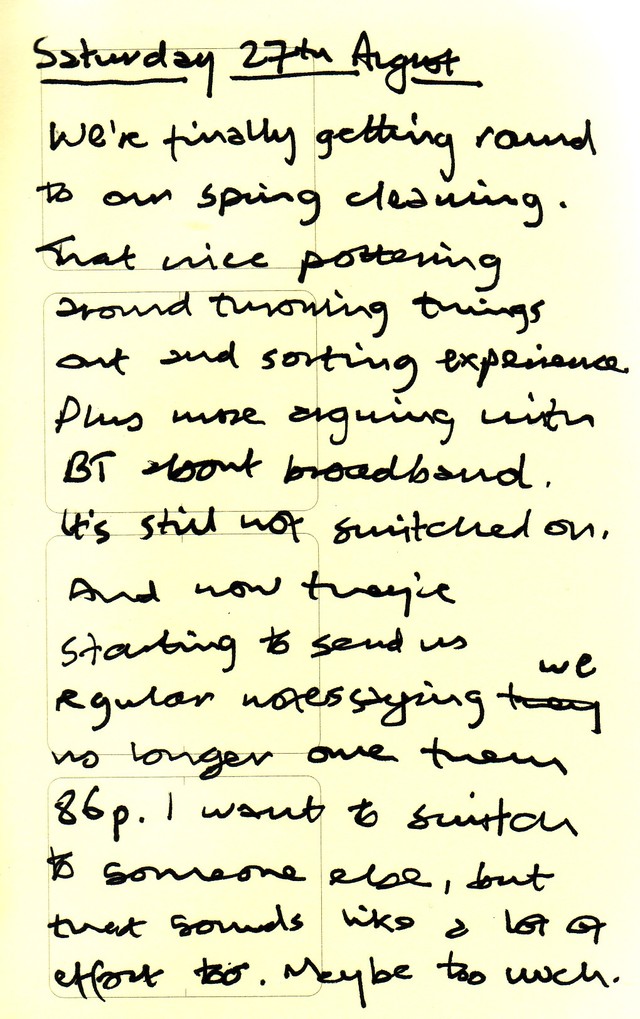 Saturday 27th August
We're finally getting round
to our spring cleaning.
That nice pottering
around throwing things
out and sorting experience.
Plus more arguing with
BT about broadband.
It's still not switched on.
And now they're
starting to send us
we
regular notes saying they
no longer owe them
86p. I want to switch
to someone else, but
that sounds like a lot of
effort too. Maybe too much.